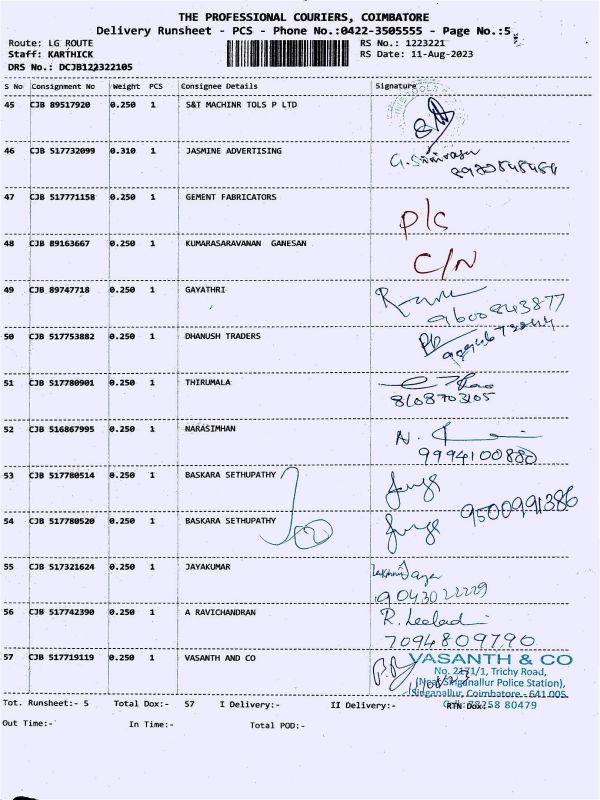 THE PROFESSIONAL COURIERS, COIMBATORE
Delivery Runsheet - PCS - Phone No.:0422-3505555 - Page No.:5
Route: LG ROUTE
RS No.: 1223221
Staff: KARTHICK
RS Date: 11-Aug-2023
DRS No.: DCJB122322105
S No Consignment No Weight PCS Consignee Details Signature
45 CJB 89517920 0.250 1 S&T MACHINR TOLS P LTD
46 CJB 517732099 0.310 1 JASMINE ADVERTISING G. Srinivasan
47 CJB 517771158 0.250 1 GEMENT FABRICATORS P/C
48 CJB 89163667 0.250 1 KUMARASARAVANAN GANESAN C/N
49 CJB 89747718 0.250 1 GAYATHRI
9600843877
50 CJB 517753882 0.250 1 DHANUSH TRADERS
51 CJB 517780901 0.250 1 THIRUMALA
8108703105
52 CJB 516867995 0.250 1 NARASIMHAN N.
9994100880
53 CJB 517780514 0.250 1 BASKARA SETHUPATHY
9500991386
54 CJB 517780520 0.250 1 BASKARA SETHUPATHY
55 CJB 517321624 0.250 1 JAYAKUMAR
9043022229
56 CJB 517742390 0.250 1 A RAVICHANDRAN R.
7094809790
57 CJB 517719119 0.250 1 VASANTH AND CO VASANTH & CO
No. 2171/1, Trichy Road,
(Near Singanallur Police Station),
Singanallur, Coimbatore - 641 005.
Cell: 78258 80479
Tot. Runsheet:- 5 Total Dox:- 57 I Delivery:- II Delivery:- RTN Dox:-
Out Time:- In Time:- Total POD:-